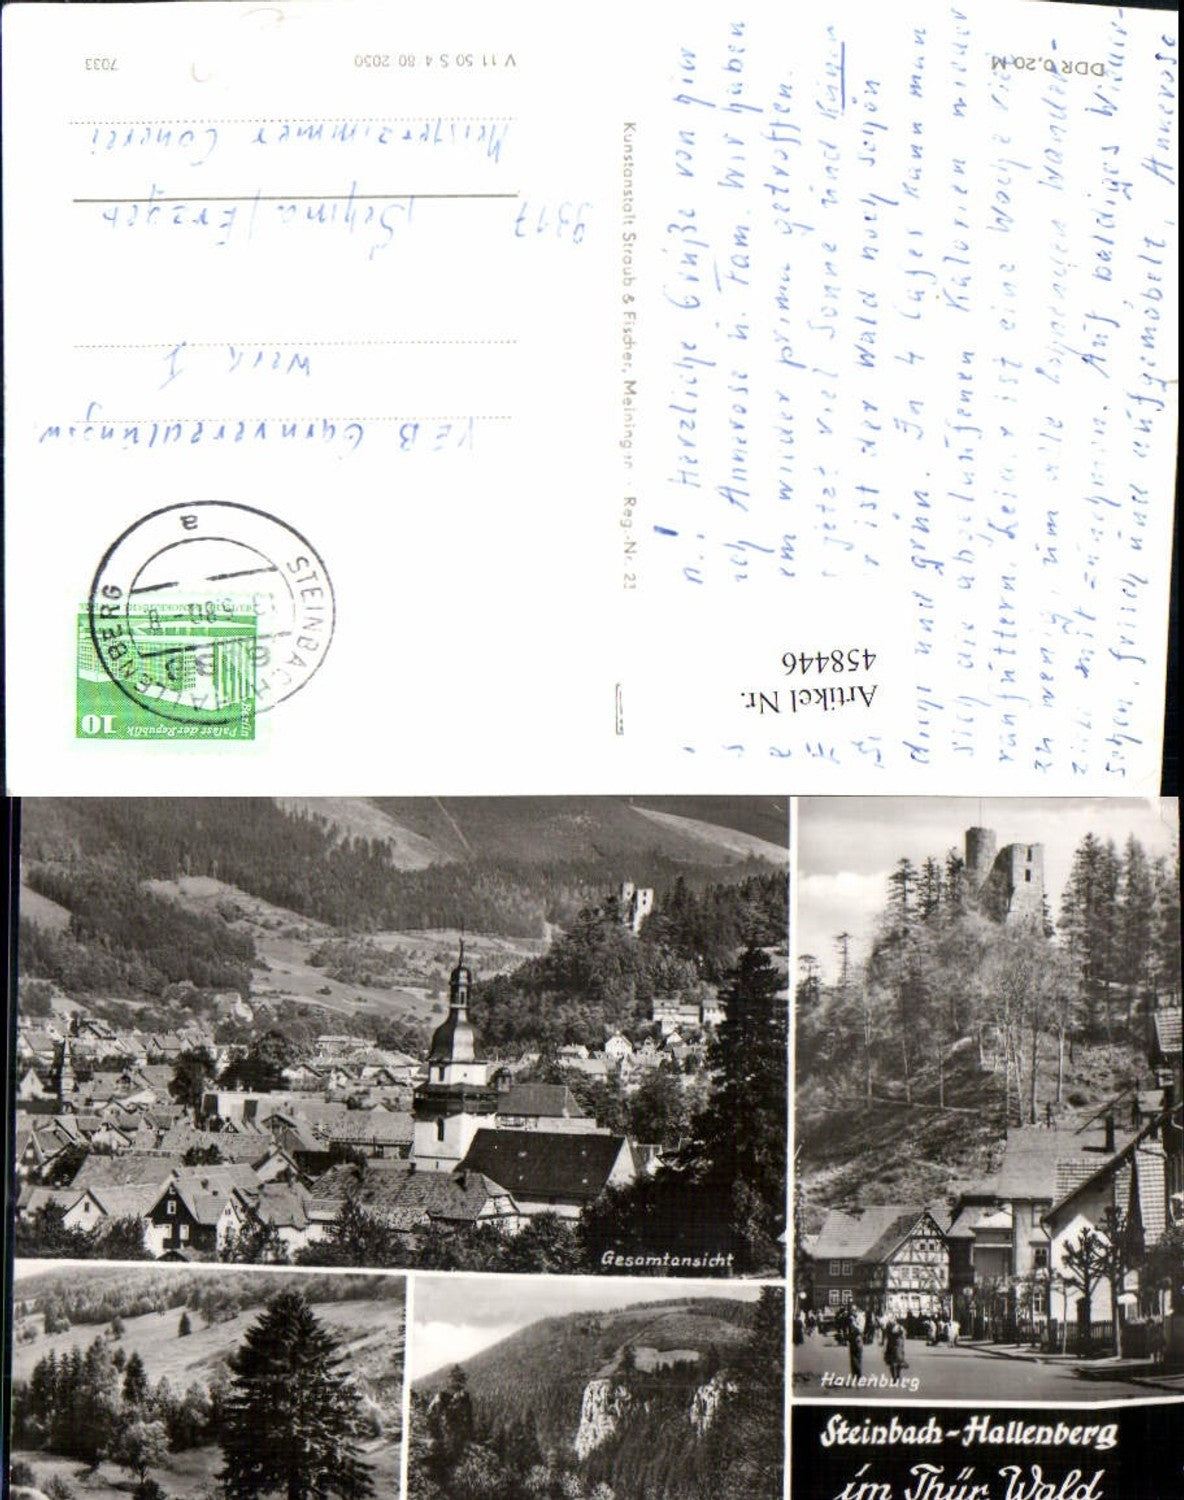 7033
V 11 50 S 4 80 2050
DDR 0,20 M
Meisterzimmer Conerei
Sehma / Erzgeb
9317
Werk I
VEB Garnveredlungsw.
Kunstanstalt Straub & Fischer, Meiningen · Reg.-Nr. 23
Herzliche Grüße von hier
Annerose u. Fam. Wir haben
wieder prima getroffen.
jetzt viel Sonne und
ist der Wald noch schön
und grün. In 4 Tagen kann man
sich die abgelaufenen Kalorien wieder
ranfuttern. Leider ist eine Woche viel
zu wenig, um alle schönen
mit Auf baldiges Wieder-
sehen, frisch und aufgemöbelt, Annerose
STEINBACH-HALLENBERG
a
10
Berlin
Palast der Republik
Artikel Nr.
458446
Gesamtansicht
Hallenburg
Steinbach-Hallenberg
im Thür. Wald